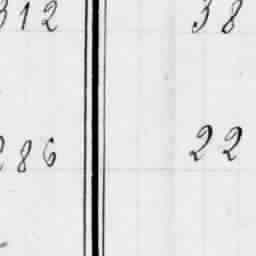 312 38
286 22